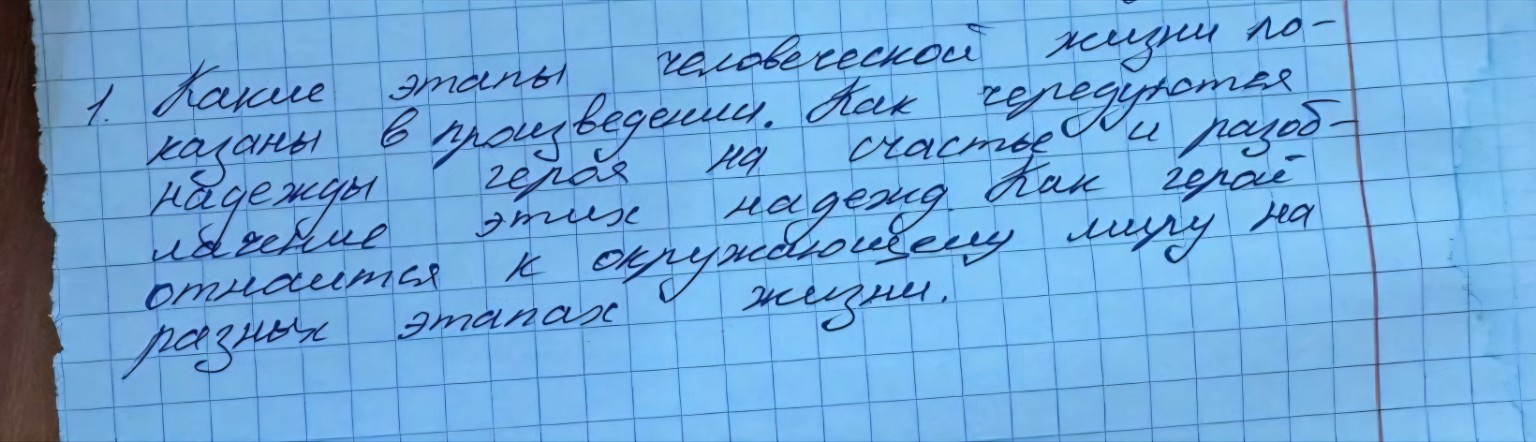 1. Какие этапы человеческой жизни по-
казаны в произведении. Как чередуются
надежды героя на счастье и разоб-
лачение этих надежд. Как герой
отноится к окружающему миру на
разных этапах жизни.